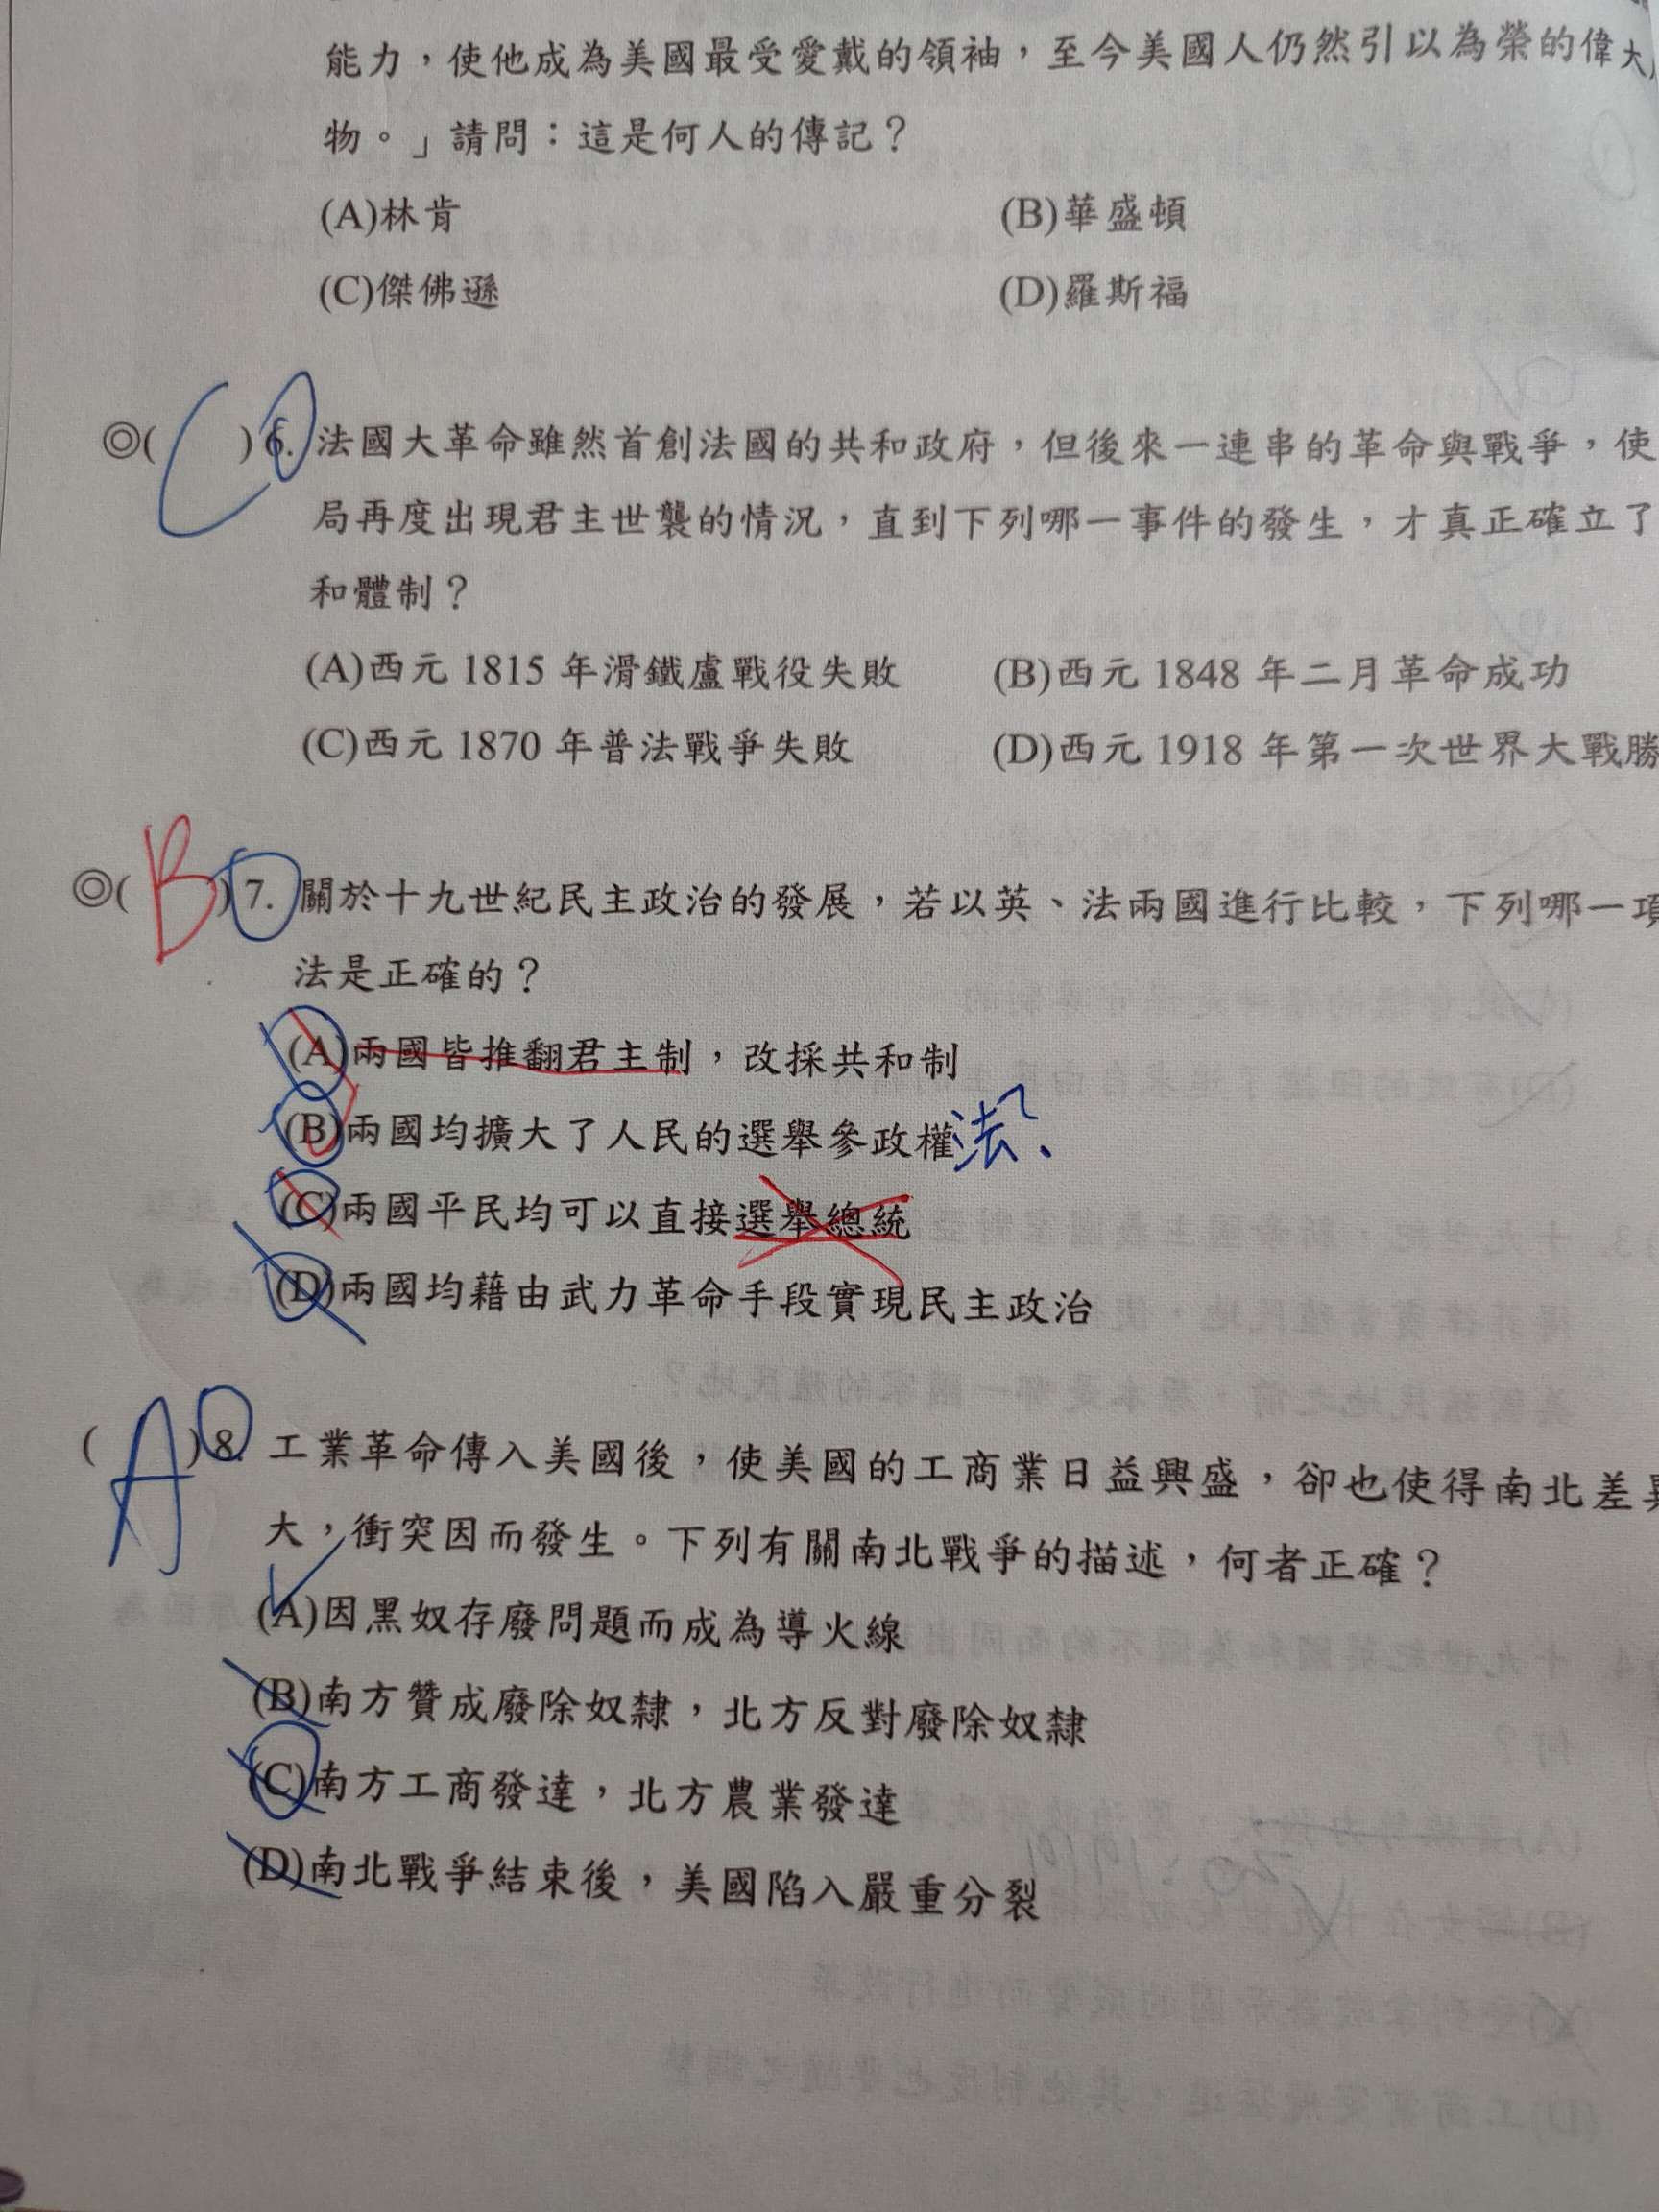 能力，使他成為美國最受愛戴的領袖，至今美國人仍然引以為榮的偉大
物。」請問：這是何人的傳記？
(A)林肯 (B)華盛頓
(C)傑佛遜 (D)羅斯福
◎( C )6. 法國大革命雖然首創法國的共和政府，但後來一連串的革命與戰爭，使
局再度出現君主世襲的情況，直到下列哪一事件的發生，才真正確立了
和體制？
(A)西元 1815 年滑鐵盧戰役失敗 (B)西元 1848 年二月革命成功
(C)西元 1870 年普法戰爭失敗 (D)西元 1918 年第一次世界大戰勝
◎( B )7. 關於十九世紀民主政治的發展，若以英、法兩國進行比較，下列哪一項
法是正確的？
(A)兩國皆推翻君主制，改採共和制
(B)兩國均擴大了人民的選舉參政權 法?
(C)兩國平民均可以直接選舉總統
(D)兩國均藉由武力革命手段實現民主政治
( A )8. 工業革命傳入美國後，使美國的工商業日益興盛，卻也使得南北差異
大，衝突因而發生。下列有關南北戰爭的描述，何者正確？
(A)因黑奴存廢問題而成為導火線
(B)南方贊成廢除奴隸，北方反對廢除奴隸
(C)南方工商發達，北方農業發達
(D)南北戰爭結束後，美國陷入嚴重分裂